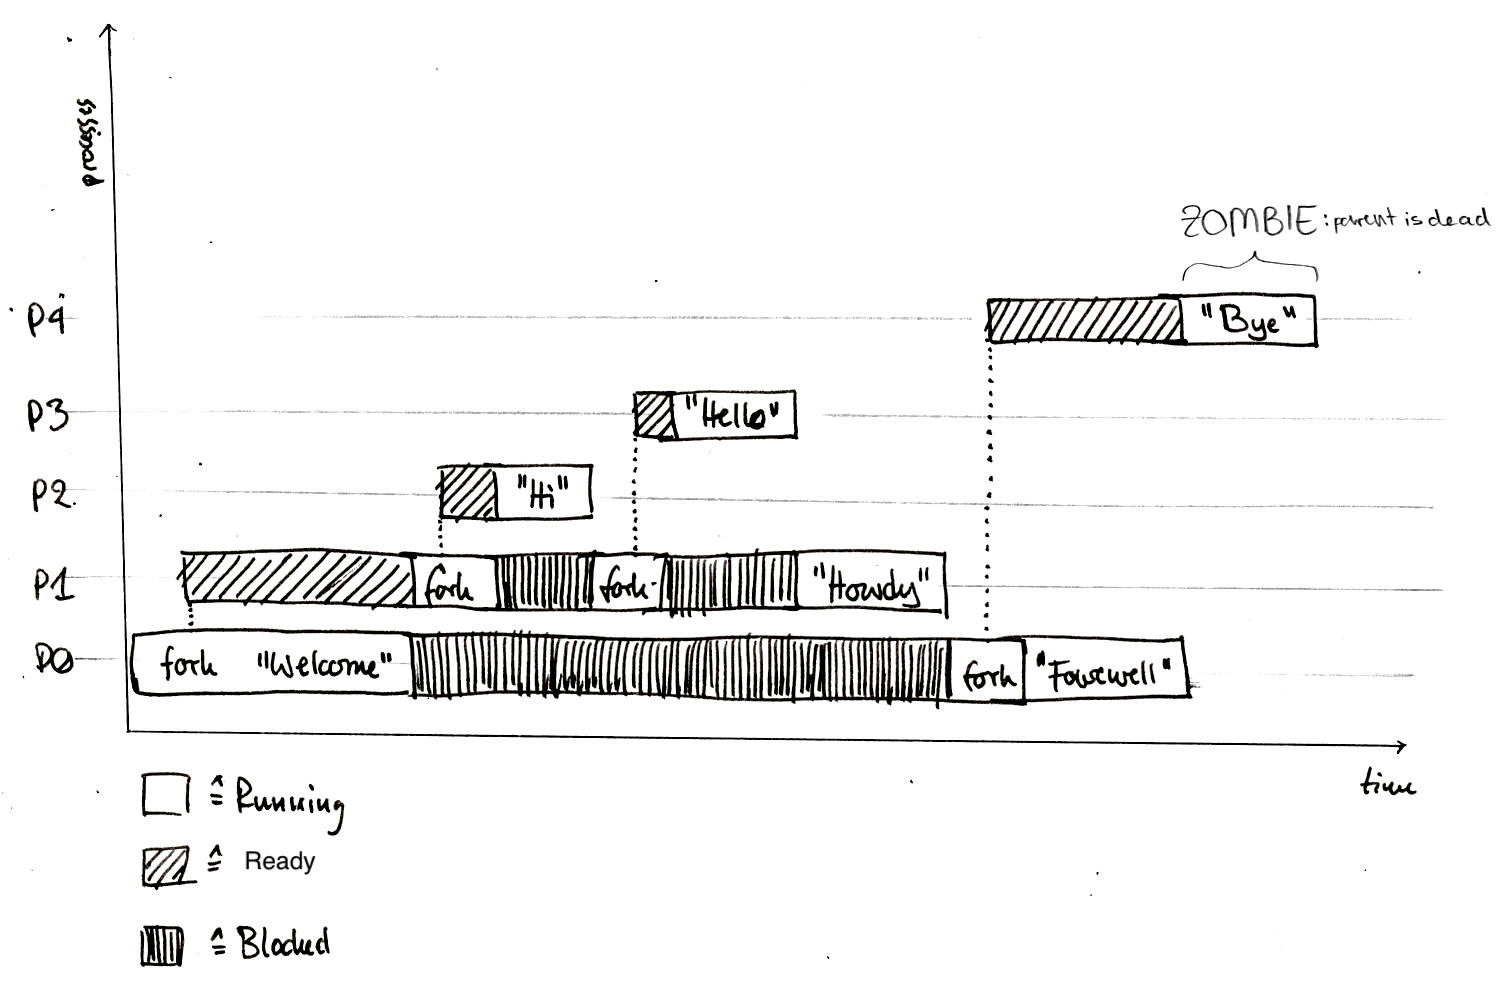 processes
ZOMBIE: parent is dead
P4 "Bye"
P3 "Hello"
P2 "Hi"
P1 fork fork "Howdy"
P0 fork "Welcome" fork "Farewell"
time
≙ Running
≙ Ready
≙ Blocked